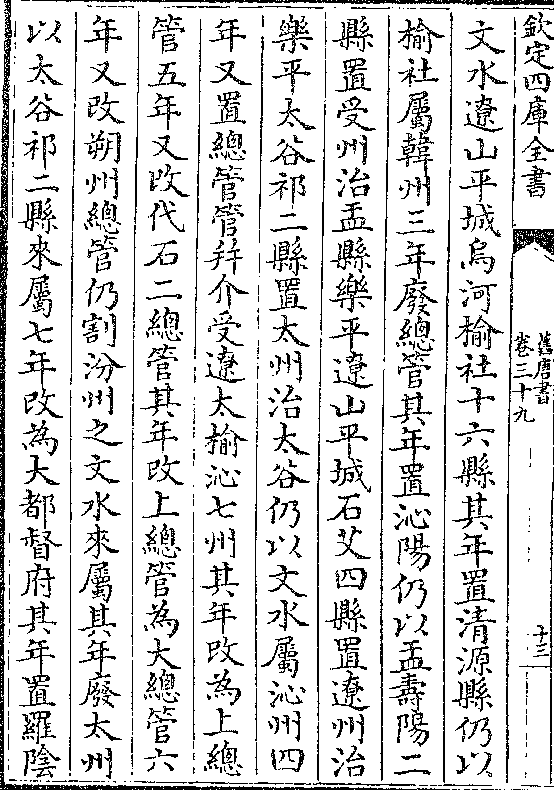 欽定四庫全書
舊唐書
卷三十九
十三
文水遼山平城烏河榆社十六縣其年置清源縣仍以
榆社屬韓州三年廢總管其年置沁陽仍以盂壽陽二
縣置受州治盂縣樂平遼山平城石艾四縣置遼州治
樂平太谷祁二縣置太州治太谷仍以文水屬沁州四
年又置總管管并介受遼太榆沁七州其年改為上總
管五年又改代石二總管其年改上總管為大總管六
年又改朔州總管仍割汾州之文水來屬其年廢太州
以太谷祁二縣來屬七年改為大都督府其年置羅陰